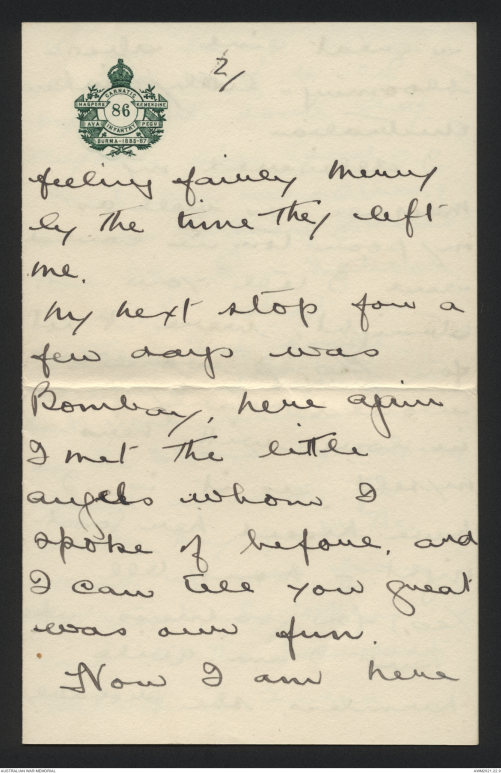 2/
CARNATIC
NAGPORE
KEMENDINE
86
AVA
INFANTRY
PEGU
BURMA-1885-87
feeling fairly merry
by the time they left
me.
My next stop for a
few days was
Bombay, here again
I met the little
angels whom I
spoke of before, and
I can tell you great
was our fun.
Now I am here
AUSTRALIAN WAR MEMORIAL